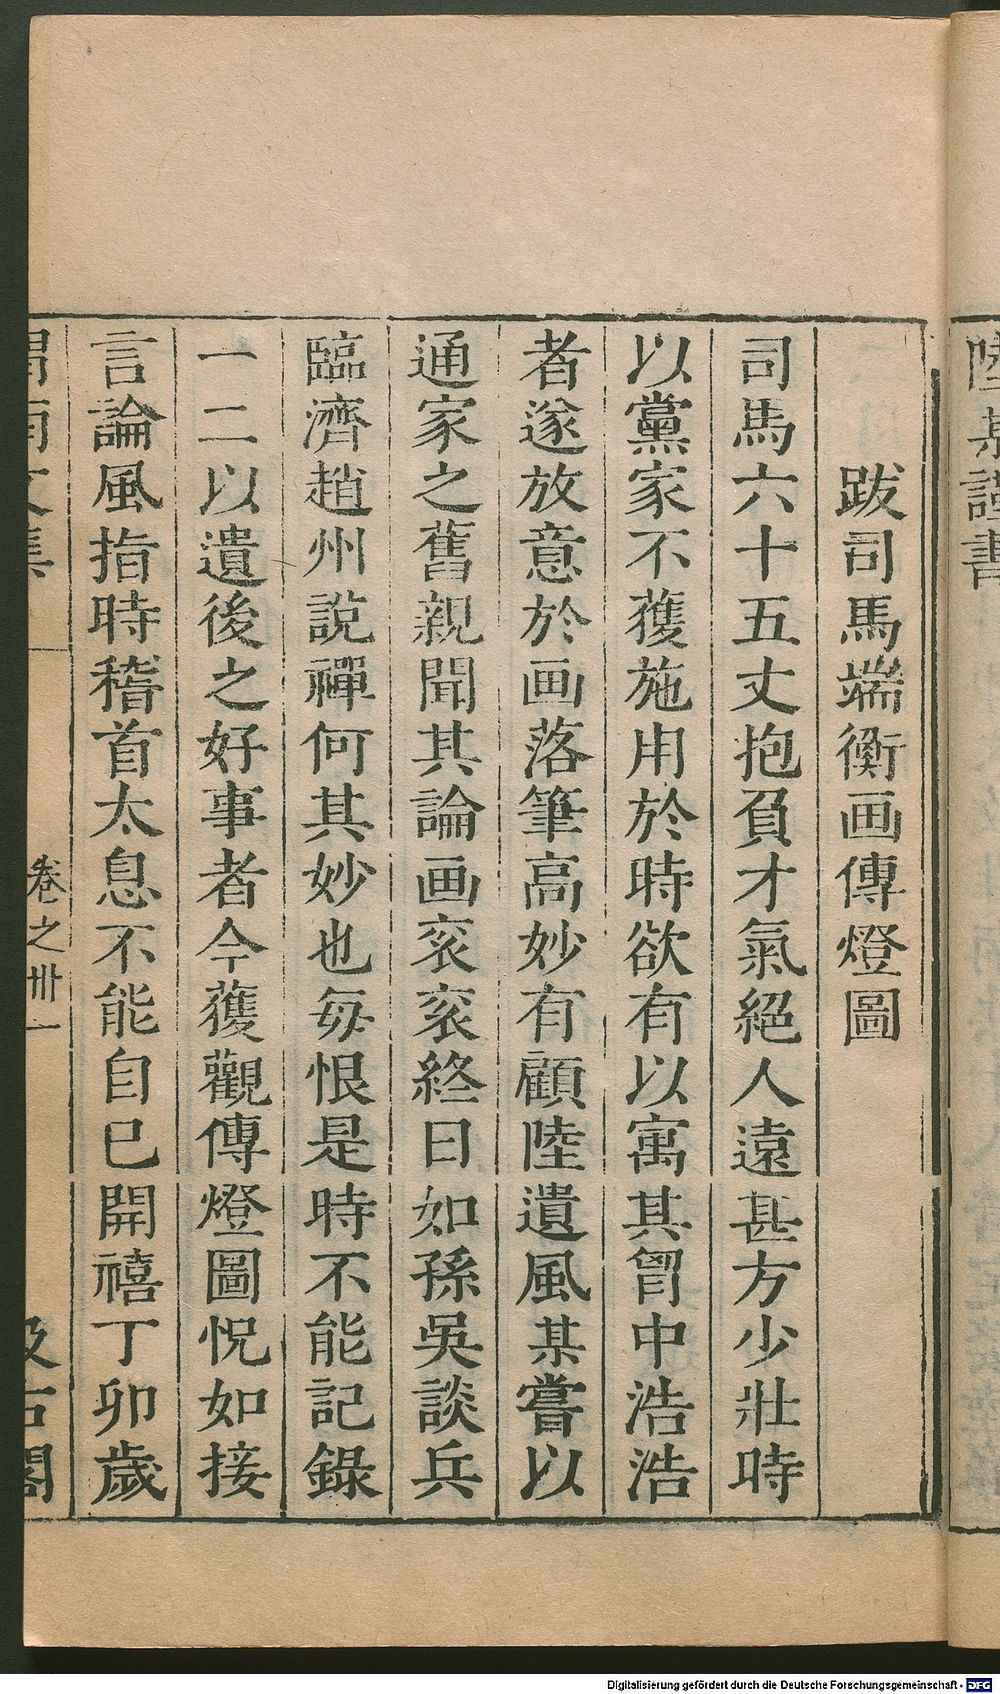 陸某謹書
跋司馬端衡画傳燈圖
司馬六十五丈抱負才氣絕人遠甚方少壯時
以黨家不獲施用於時欲有以寓其胷中浩浩
者遂放意於画落筆高妙有顧陸遺風某嘗以
通家之舊親聞其論画衮衮終日如孫吳談兵
臨濟趙州說禪何其妙也每恨是時不能記錄
一二以遺後之好事者今獲觀傳燈圖怳如接
言論風指時稽首太息不能自已開禧丁卯歲
渭南文集 卷之卅一 汲古閣
Digitalisierung gefördert durch die Deutsche Forschungsgemeinschaft - DFG